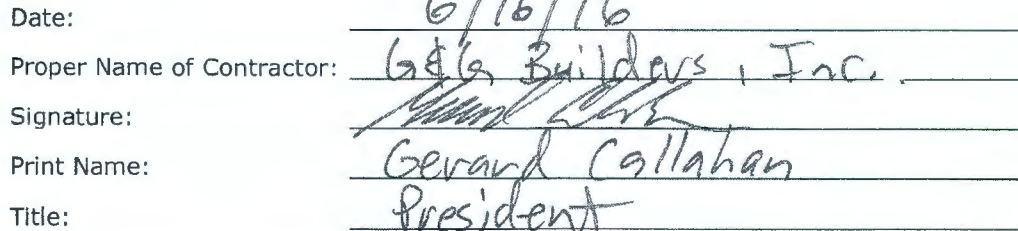 Date: 6/16/16
Proper Name of Contractor: G&G Builders, Inc.
Signature:
Print Name: Gerard Callahan
Title: President